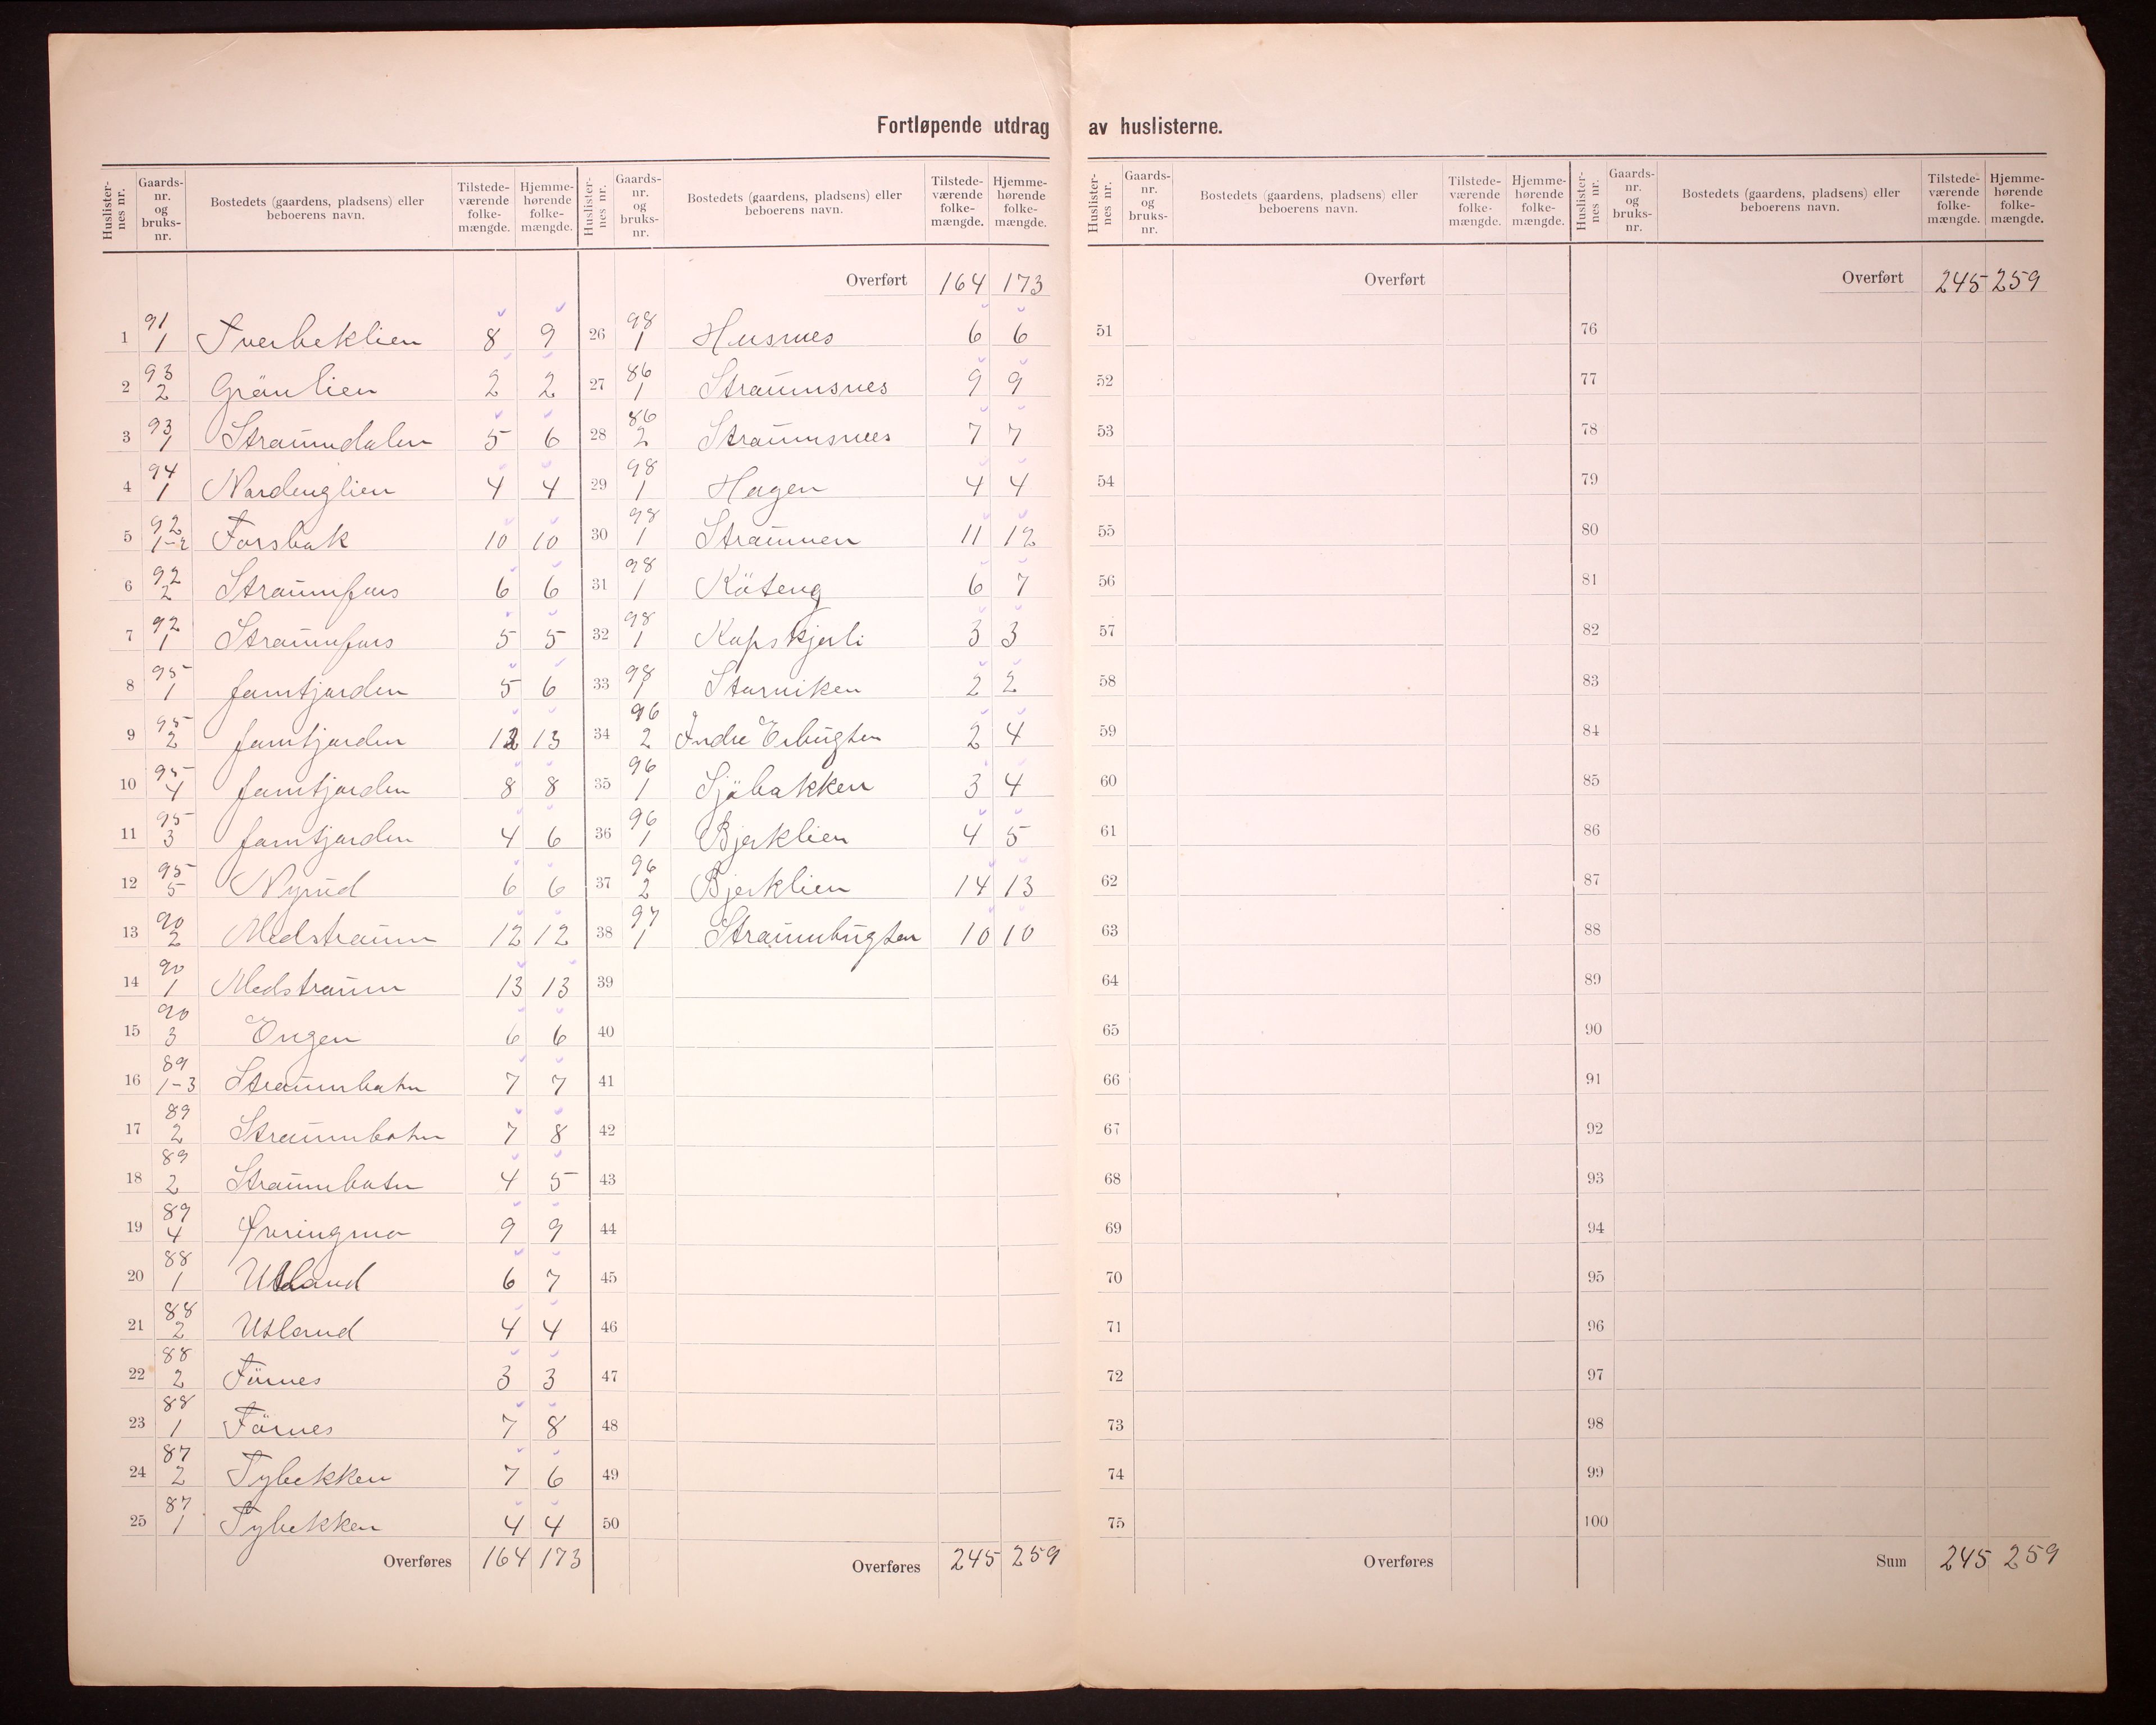 Fortløpende utdrag av huslisterne.
Huslisternes nr. Gaards-nr. og bruks-nr. Bostedets (gaardens, pladsens) eller beboerens navn. Tilstede-værende folke-mængde. Hjemme-hørende folke-mængde.
1 91/1 Tverbeklien 8 9
2 93/2 Grönlien 2 2
3 93/1 Straumdalen 5 6
4 94/1 Nordenglien 4 4
5 92/1-2 Forsbak 10 10
6 92/2 Straumfors 6 6
7 92/1 Straumfors 5 5
8 95/1 Jamtjorden 5 6
9 95/2 Jamtjorden 12 13
10 95/4 Jamtjorden 8 8
11 95/3 Jamtjorden 4 6
12 95/5 Nyrud 6 6
13 90/2 Medstraum 12 12
14 90/1 Medstraum 13 13
15 90/3 Engen 6 6
16 89/1-3 Straumbotn 7 7
17 89/2 Straumbotn 7 8
18 89/2 Straumbotn 4 5
19 89/4 Øveringmo 9 9
20 88/1 Utland 6 7
21 88/2 Utland 4 4
22 88/2 Förnes 3 3
23 88/1 Förnes 7 8
24 87/2 Tybekken 7 6
25 87/1 Tybekken 4 4
Overføres 164 173
Huslisternes nr. Gaards-nr. og bruks-nr. Bostedets (gaardens, pladsens) eller beboerens navn. Tilstede-værende folke-mængde. Hjemme-hørende folke-mængde.
Overført 164 173
26 98/1 Husnes 6 6
27 86/1 Straumsnes 9 9
28 86/2 Straumsnes 7 7
29 98/1 Hagen 4 4
30 98/1 Straumen 11 12
31 98/1 Köteng 6 7
32 98/1 Kapskjerli 3 3
33 98/1 Storviken 2 2
34 96/2 Indre Erbugten 2 4
35 96/1 Sjöbakken 3 4
36 96/1 Bjerklien 4 5
37 96/2 Bjerklien 14 13
38 97/1 Straumbugten 10 10
39
40
41
42
43
44
45
46
47
48
49
50
Overføres 245 259
Huslisternes nr. Gaards-nr. og bruks-nr. Bostedets (gaardens, pladsens) eller beboerens navn. Tilstede-værende folke-mængde. Hjemme-hørende folke-mængde.
Overført
51
52
53
54
55
56
57
58
59
60
61
62
63
64
65
66
67
68
69
70
71
72
73
74
75
Overføres
Huslisternes nr. Gaards-nr. og bruks-nr. Bostedets (gaardens, pladsens) eller beboerens navn. Tilstede-værende folke-mængde. Hjemme-hørende folke-mængde.
Overført 245 259
76
77
78
79
80
81
82
83
84
85
86
87
88
89
90
91
92
93
94
95
96
97
98
99
100
Sum 245 259